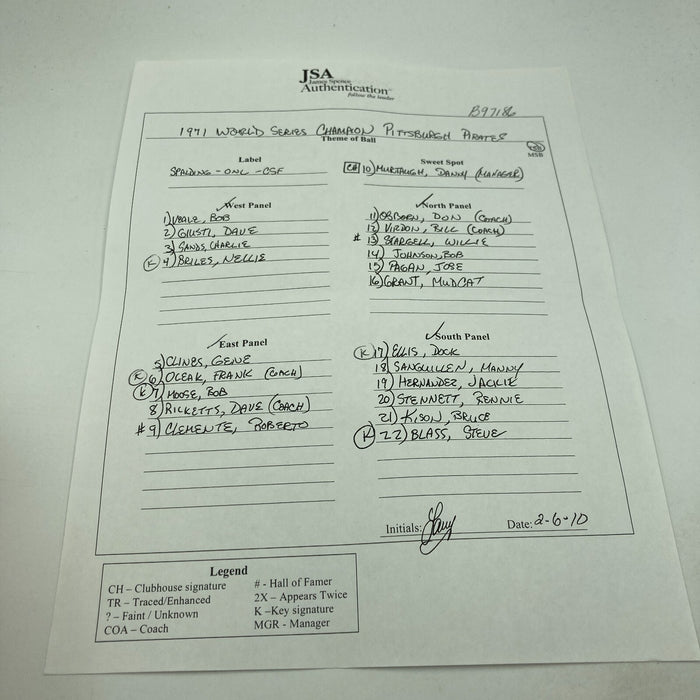 JSA
James Spence
Authentication
follow the leader
B97186
1971 WORLD SERIES CHAMPION PITTSBURGH PIRATES
Theme of Ball
MSB
Label
SPALDING - ONL - CSF
Sweet Spot
10) MURTAUGH, DANNY (MANAGER)
West Panel
1) VEALE, BOB
2) GIUSTI, DAVE
3) SANDS, CHARLIE
K 4) BRILES, NELLIE
North Panel
11) OSBORN, DON (COACH)
12) VIRDON, BILL (COACH)
# 13) STARGELL, WILLIE
14) JOHNSON, BOB
15) PAGAN, JOSE
16) GRANT, MUDCAT
East Panel
5) CLINES, GENE
K 6) OCEAK, FRANK (COACH)
K 7) MOOSE, BOB
8) RICKETTS, DAVE (COACH)
# 9) CLEMENTE, ROBERTO
South Panel
K 17) ELLIS, DOCK
18) SANGUILLEN, MANNY
19) HERNANDEZ, JACKIE
20) STENNETT, RENNIE
21) KISON, BRUCE
K 22) BLASS, STEVE
Initials:
Date: 2-6-10
Legend
CH – Clubhouse signature
TR – Traced/Enhanced
? – Faint / Unknown
COA – Coach
# - Hall of Famer
2X – Appears Twice
K –Key signature
MGR - Manager